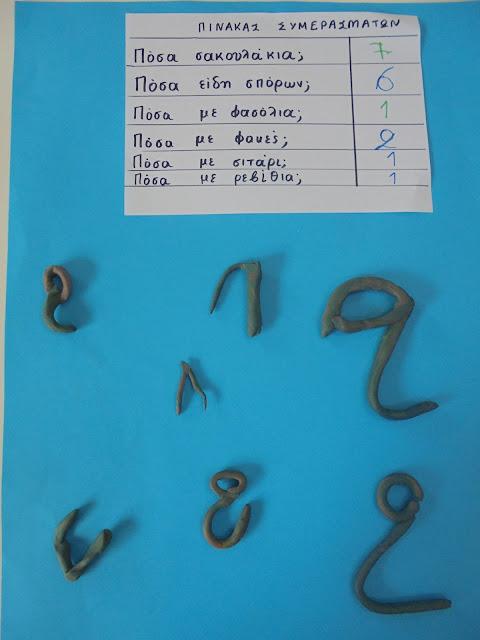 ΠΙΝΑΚΑΣ ΣΥΜΕΡΑΣΜΑΤΩΝ
Πόσα σακουλάκια; 7
Πόσα είδη σπόρων; 6
Πόσα με φασόλια; 1
Πόσα με φακές; 2
Πόσα με σιτάρι; 1
Πόσα με ρεβίθια; 1